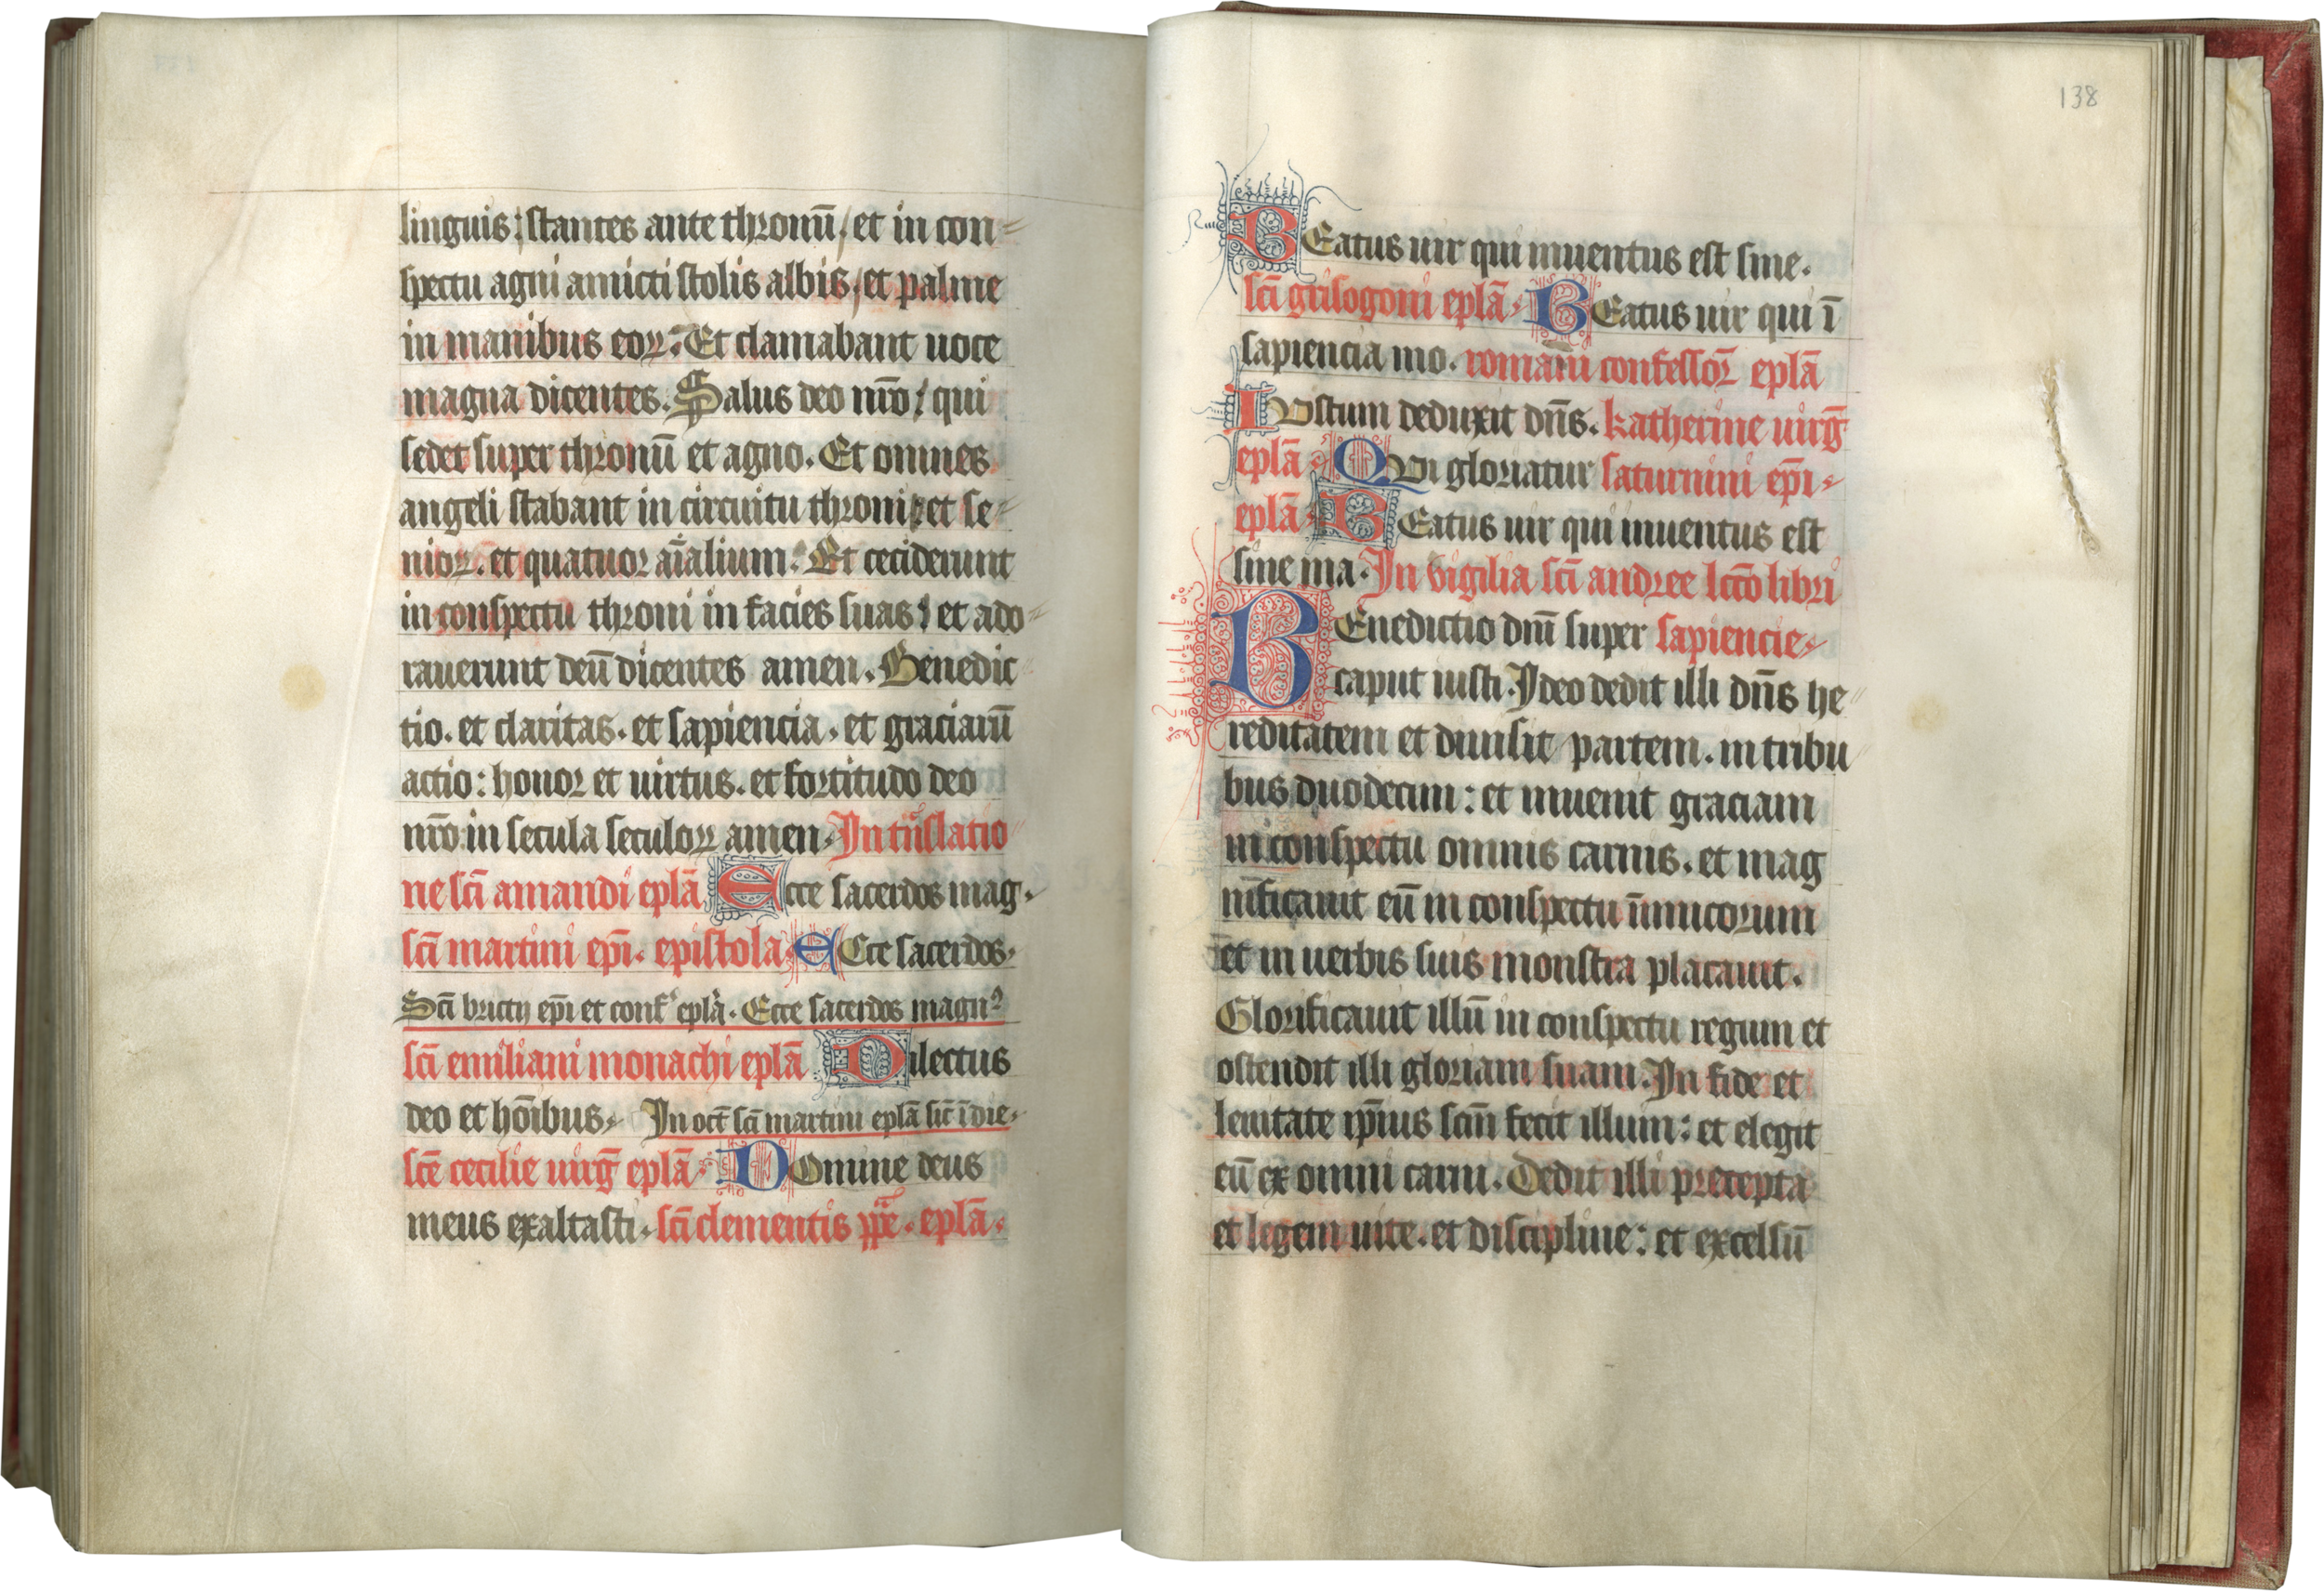 linguis; stantes ante thronū, et in con=
spectu agni amicti stolis albis, et palme
in manibus eoꝝ. Et clamabant uoce
magna dicentes. Salus deo nr̄o; qui
sedet super thronū et agno. Et omnes
angeli stabant in circuitu throni; et se=
nioꝝ. et quatuor aīalium. Et ceciderunt
in conspectu throni in facies suas; et ado=
rauerunt deū dicentes amen. Benedic=
tio. et claritas. et sapiencia. et graciarū
actio: honor et uirtus. et fortitudo deo
nr̄o in secula seculoꝝ amen. In trāslatio=
ne sc̄i amandi eplā Ecce sacerdos mag.
sc̄i martini ep̄i. epistola. ECce sacerdos.
Sc̄i brictij ep̄i et conf' eplā. Ecce sacerdos magnꝰ
sc̄i emiliani monachi eplā Dilectus
deo et hōibus. In oct̄ sc̄i martini eplā sic̄ ī die.
sc̄e cecilie uirḡ eplā. DOmine deus
meus exaltasti. sc̄i clementis pp̄e. eplā.
138
BEatus uir qui inuentus est sine.
sc̄i grisogoni eplā. BEatus uir qui ī
sapiencia mo. romani confessor̄ eplā
IUstum deduxit dn̄s. katherine uirḡ
eplā. QUi gloriatur saturnini ep̄i.
eplā. BEatus uir qui inuentus est
sine ma. In vigilia sc̄i andree lcc̄o libri
BEnedictio dn̄i super sapiencie.
caput iusti. Ideo dedit illi dn̄s he=
reditatem et diuisit partem. in tribu=
bus duodecim: et inuenit graciam
in conspectu omnis carnis. et mag
nificauit eū in conspectu inimicorum
et in uerbis suis monstra placauit.
Glorificauit illū in conspectu regum et
ostendit illi gloriam suam. In fide et
lenitate ip̄ius scm̄ fecit illum: et elegit
eū ex omni carni. Dedit illi precepta
et legem uite. et discipline: et excelsū